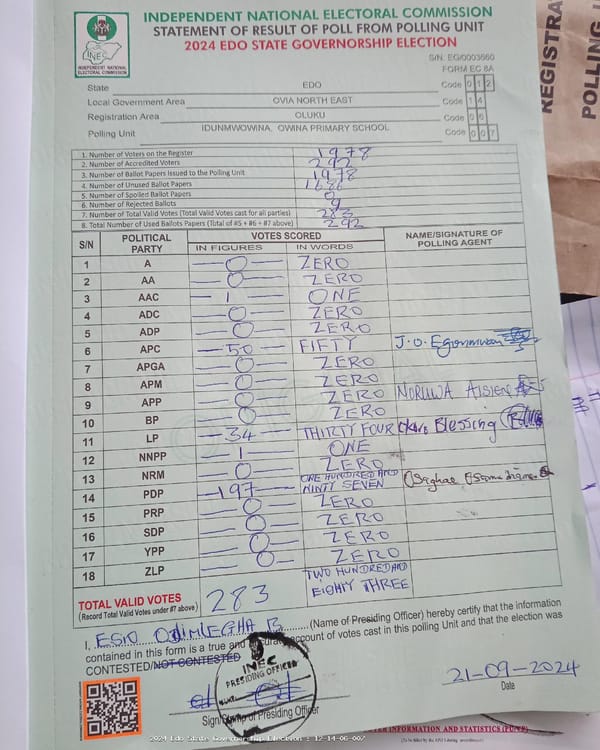 INDEPENDENT NATIONAL ELECTORAL COMMISSION
STATEMENT OF RESULT OF POLL FROM POLLING UNIT
2024 EDO STATE GOVERNORSHIP ELECTION
INEC
INDEPENDENT NATIONAL
ELECTORAL COMMISSION
S/N: EG/0003660
FORM EC 8A
State EDO Code 0 1 2
Local Government Area OVIA NORTH EAST Code 1 4
Registration Area OLUKU Code 0 6
Polling Unit IDUNMWOWINA, OWINA PRIMARY SCHOOL Code 0 0 7
1. Number of Voters on the Register 1978
2. Number of Accredited Voters 292
3. Number of Ballot Papers Issued to the Polling Unit 1978
4. Number of Unused Ballot Papers 1686
5. Number of Spoiled Ballot Papers 0
6. Number of Rejected Ballots 9
7. Number of Total Valid Votes (Total Valid Votes cast for all parties) 283
8. Total Number of Used Ballots Papers (Total of #5 + #6 + #7 above) 292
S/N POLITICAL PARTY VOTES SCORED NAME/SIGNATURE OF POLLING AGENT
IN FIGURES IN WORDS
1 A 0 ZERO
2 AA 0 ZERO
3 AAC 1 ONE
4 ADC 0 ZERO
5 ADP 0 ZERO
6 APC 50 FIFTY J.O.
7 APGA 0 ZERO
8 APM 0 ZERO
9 APP 0 ZERO NORUWA AISIEN
10 BP 0 ZERO
11 LP 34 THIRTY FOUR Blessing
12 NNPP 1 ONE
13 NRM 0 ZERO
14 PDP 197 ONE HUNDRED AND NINTY SEVEN
15 PRP 0 ZERO
16 SDP 0 ZERO
17 YPP 0 ZERO
18 ZLP 0 ZERO
TOTAL VALID VOTES 283 TWO HUNDRED AND EIGHTY THREE
(Record Total Valid Votes under #7 above)
I, ESIO B. (Name of Presiding Officer) hereby certify that the information
contained in this form is a true and account of votes cast in this polling Unit and that the election was
CONTESTED/NOT CONTESTED
INEC
PRESIDING OFFICER
Sign/Stamp of Presiding Officer
21-09-2024
Date
2024 Edo State Governorship Election : 12-14-06-007
INFORMATION AND STATISTICS
REGISTRA
POLLING